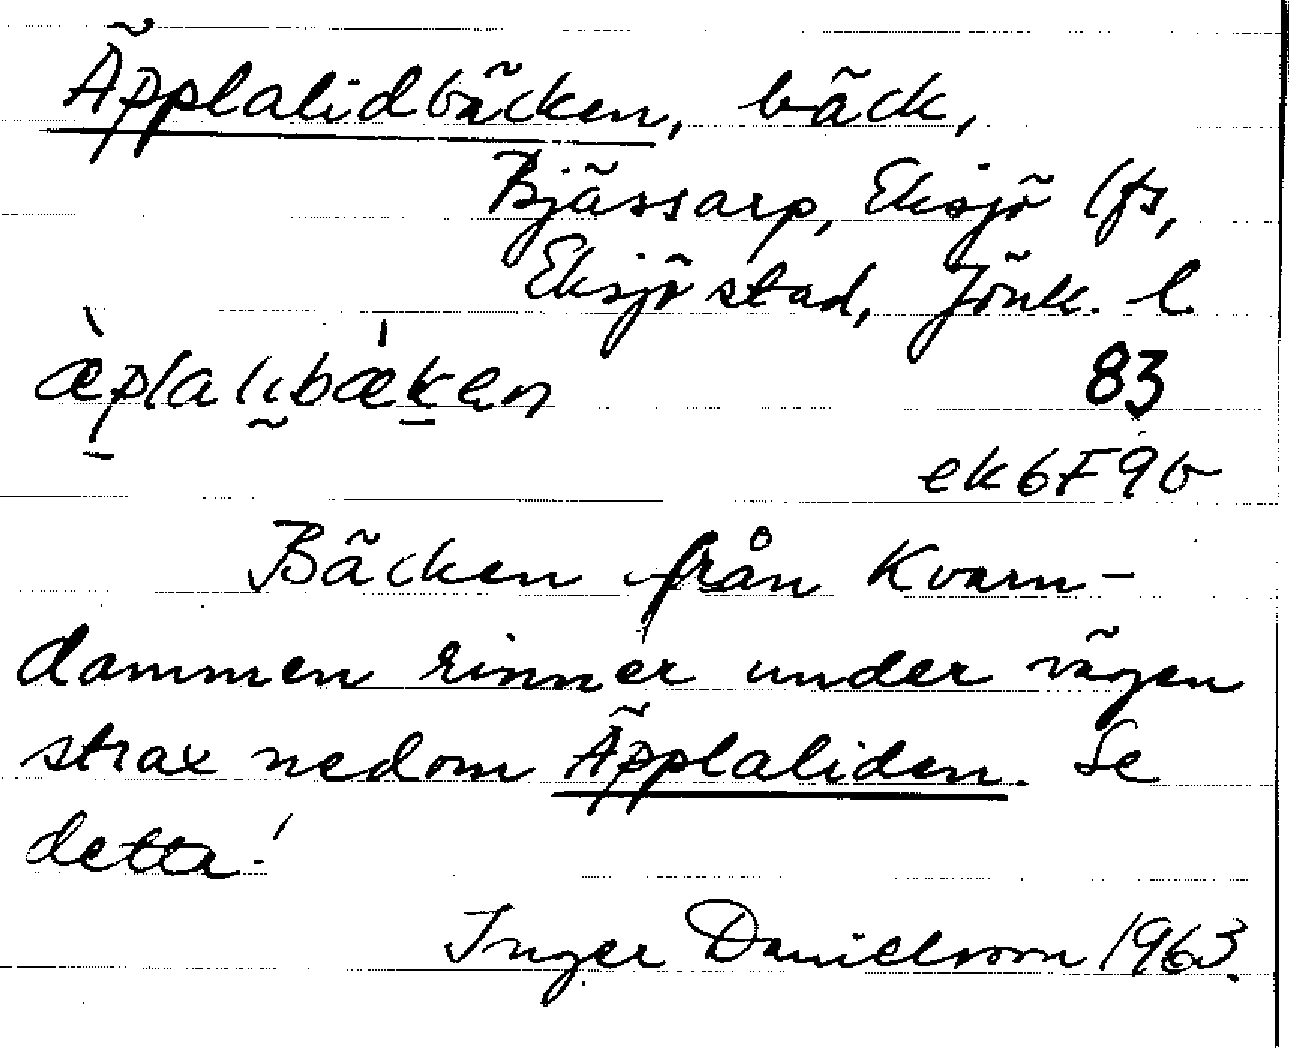 Äpplalidbäcken, bäck,
Bjässarp, Eksjö lfs,
Eksjö stad, Jönk. l
æ̀plalibæ̀ken
83
ek 6F9b
Bäcken från Kvarn-
dammen rinner under vägen
strax nedom Äpplaliden. Se
detta!
Inger Danielsson 1963.